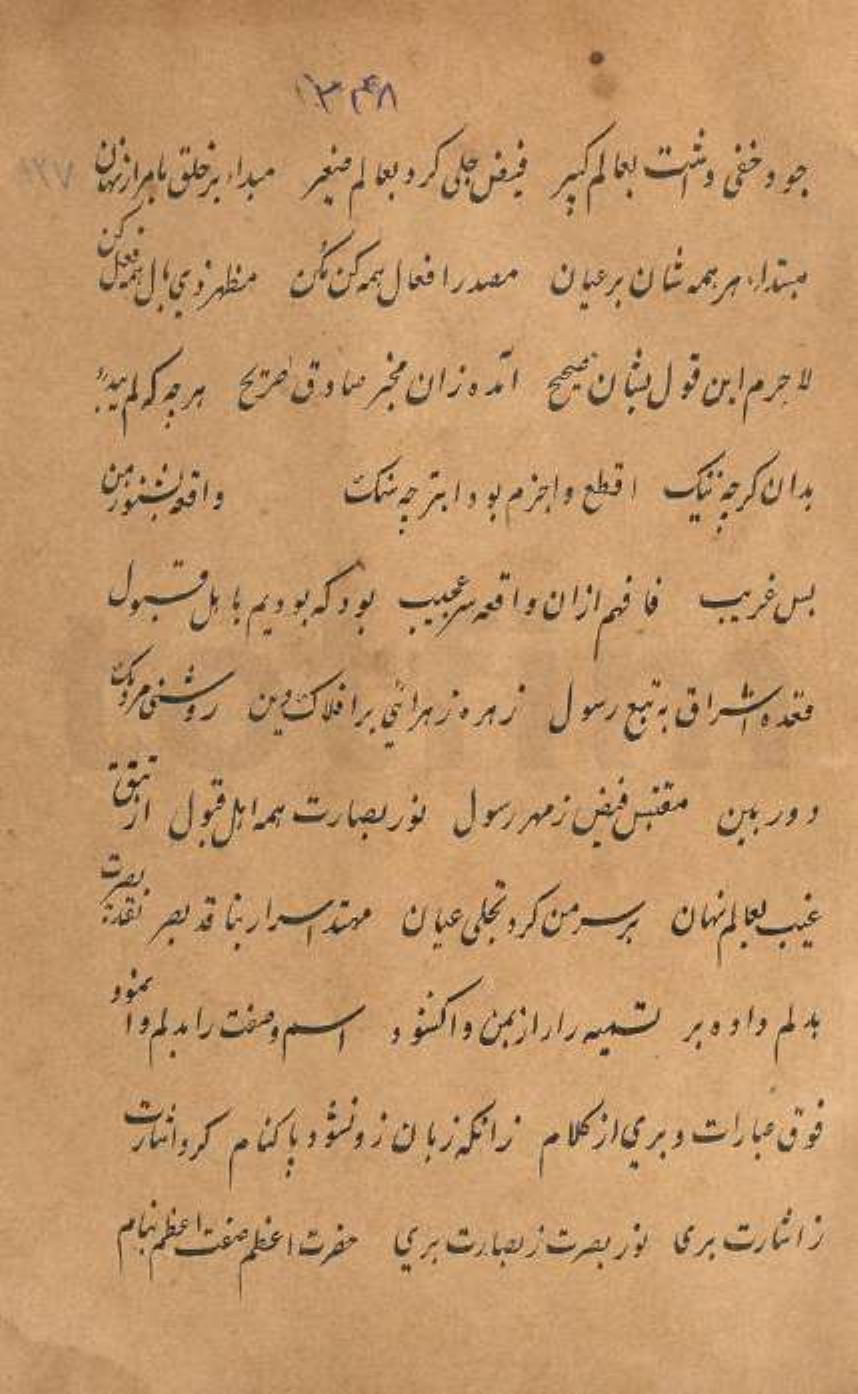 ۱۳۴۸
جود خفی داشت بعالم کبیر فیض جلی کرد بعالم صغیر مبداء بر خلق بامر از نهان
مبتداء هر همه شان بر عیان مصدر افعال همه کن مکن مظهر ذی بال همه فعل کن
لاجرم این قول بشان صحیح آمده زان مخبر صادق صریح هر چه که لم یبدء
بدان گرچه نیک اقطع و اجزم بود ابتر چه سنک واقعه بشنو ز من
بس غریب فافهم ازان واقعه سر عجیب بود که بودیم باهل قبول
قعده اشراق به تبع رسول زهره زهرائی بر افلاک دین روشنی مردمک
دور بین مقتبس فیض ز مهر رسول نور بصارت همه اهل قبول از تتق
غیب بعالم نهان بر سر من کرد تجلی عیان مهتد اسرار بنا قد بصر نقد بصرت
بدلم داده بر تسمیه را راز بمن واکشود اسم و صفت را بدلم وا نمود
فوق عبارات و بری از کلام زانکه زبان زو نشود با کنام کرد اشارت
ز اشارت بری نور بصرت ز بصارت بری حضرت اعظم صفت اعظم بنام